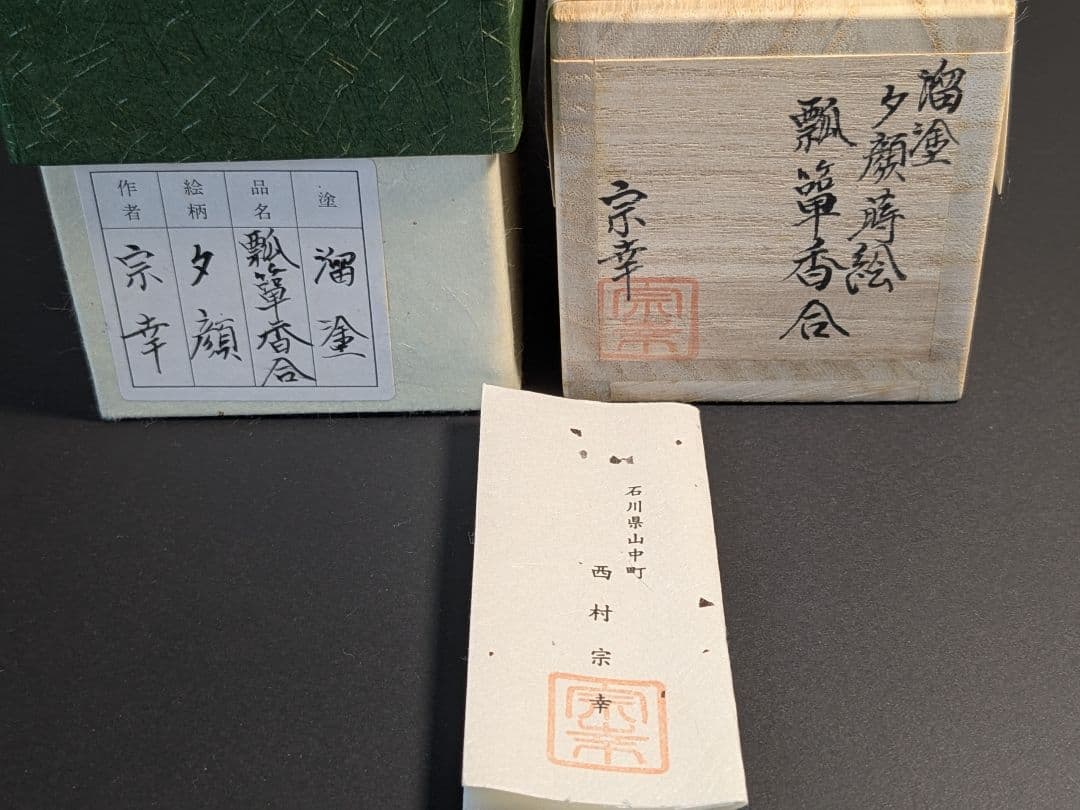 塗
溜塗
品名
瓢箪香合
絵柄
夕顔
作者
宗幸
溜塗
夕顔蒔絵
瓢箪香合
宗幸
宗幸
石川県山中町
西村宗幸
宗幸